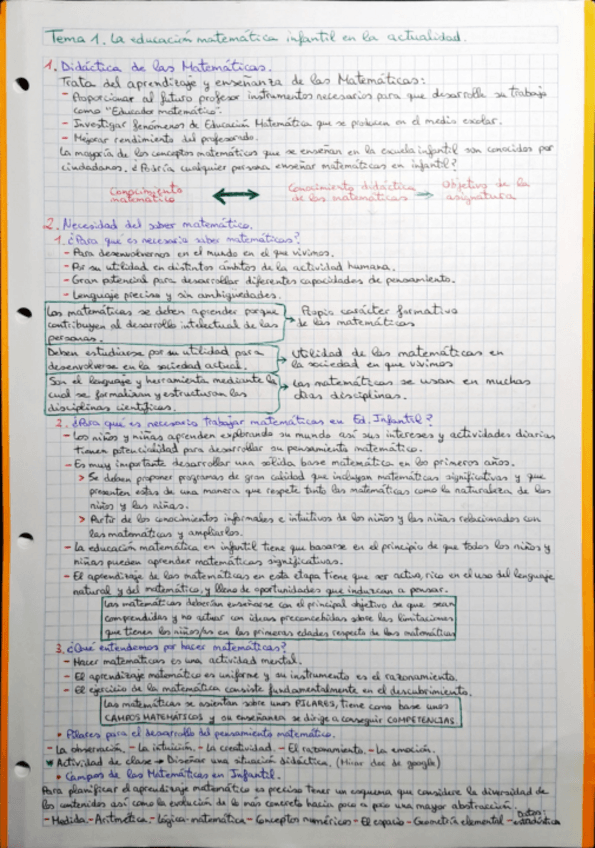 Tema 1. La educación matemática infantil en la actualidad.
1. Didáctica de las Matemáticas.
Trata del aprendizaje y enseñanza de las Matemáticas:
- Proporcionar al futuro profesor instrumentos necesarios para que desarrolle su trabajo
como "Educador matemático".
- Investigar fenómenos de Educación Matemática que se producen en el medio escolar.
- Mejorar rendimiento del profesorado.
La mayoría de los conceptos matemáticos que se enseñan en la escuela infantil son conocidos por
ciudadanos. ¿Podría cualquier persona enseñar matemáticas en infantil?
Conocimiento matemático ↔ Conocimiento didáctico de las matemáticas → Objetivo de la asignatura
2. Necesidad del saber matemático.
1. ¿Para qué es necesario saber matemáticas?
- Para desenvolvernos en el mundo en el que vivimos.
- Por su utilidad en distintos ámbitos de la actividad humana.
- Gran potencial para desarrollar diferentes capacidades de pensamiento.
- Lenguaje preciso y sin ambiguedades.
Las matemáticas se deben aprender porque
contribuyen al desarrollo intelectual de las
personas.
→ Propio carácter formativo
de las matemáticas
Deben estudiarse por su utilidad para
desenvolverse en la sociedad actual.
→ Utilidad de las matemáticas en
la sociedad en que vivimos
Son el lenguaje y herramienta mediante la
cual se formalizan y estructuran las
disciplinas científicas.
→ Las matemáticas se usan en muchas
otras disciplinas.
2. ¿Para qué es necesario trabajar matemáticas en Ed. Infantil?
- Los niños y niñas aprenden explorando su mundo así sus intereses y actividades diarias
tienen potencialidad para desarrollar su pensamiento matemático.
- Es muy importante desarrollar una sólida base matemática en los primeros años.
> Se deben proponer programas de gran calidad que incluyan matemáticas significativas y que
presenten estas de una manera que respete tanto las matemáticas como la naturaleza de los
niños y las niñas.
> Partir de los conocimientos informales e intuitivos de los niños y las niñas relacionados con
las matemáticas y ampliarlos.
- La educación matemática en infantil tiene que basarse en el principio de que todos los niños y
niñas pueden aprender matemáticas significativas.
- El aprendizaje de las matemáticas en esta etapa tiene que ser activo, rico en el uso del lenguaje
natural y del matemático, y lleno de oportunidades que induzcan a pensar.
Las matemáticas deberían enseñarse con el principal objetivo de que sean
comprendidas y no actuar con ideas preconcebidas sobre las limitaciones
que tienen los niños/as en las primeras edades respecto de las matemáticas
3. ¿Qué entendemos por hacer matemáticas?
- Hacer matemáticas es una actividad mental.
- El aprendizaje matemático es uniforme y su instrumento es el razonamiento.
- El ejercicio de la matemática consiste fundamentalmente en el descubrimiento.
Las matemáticas se asientan sobre unos PILARES, tiene como base unos
CAMPOS MATEMÁTICOS y su enseñanza se dirige a conseguir COMPETENCIAS.
• Pilares para el desarrollo del pensamiento matemático.
- La observación. - La intuición. - La creatividad. - El razonamiento. - La emoción.
Actividad de clase → Diseñar una situación didáctica. (Mirar doc de google)
• Campos de las Matemáticas en Infantil.
Para planificar el aprendizaje matemático es preciso tener un esquema que considere la diversidad de
los contenidos así como la evolución de lo más concreto hacia poco a poco una mayor abstracción.
- Medida - Aritmética - Lógica-matemática - Conceptos numéricos - El espacio - Geometría elemental - Datos: estadística